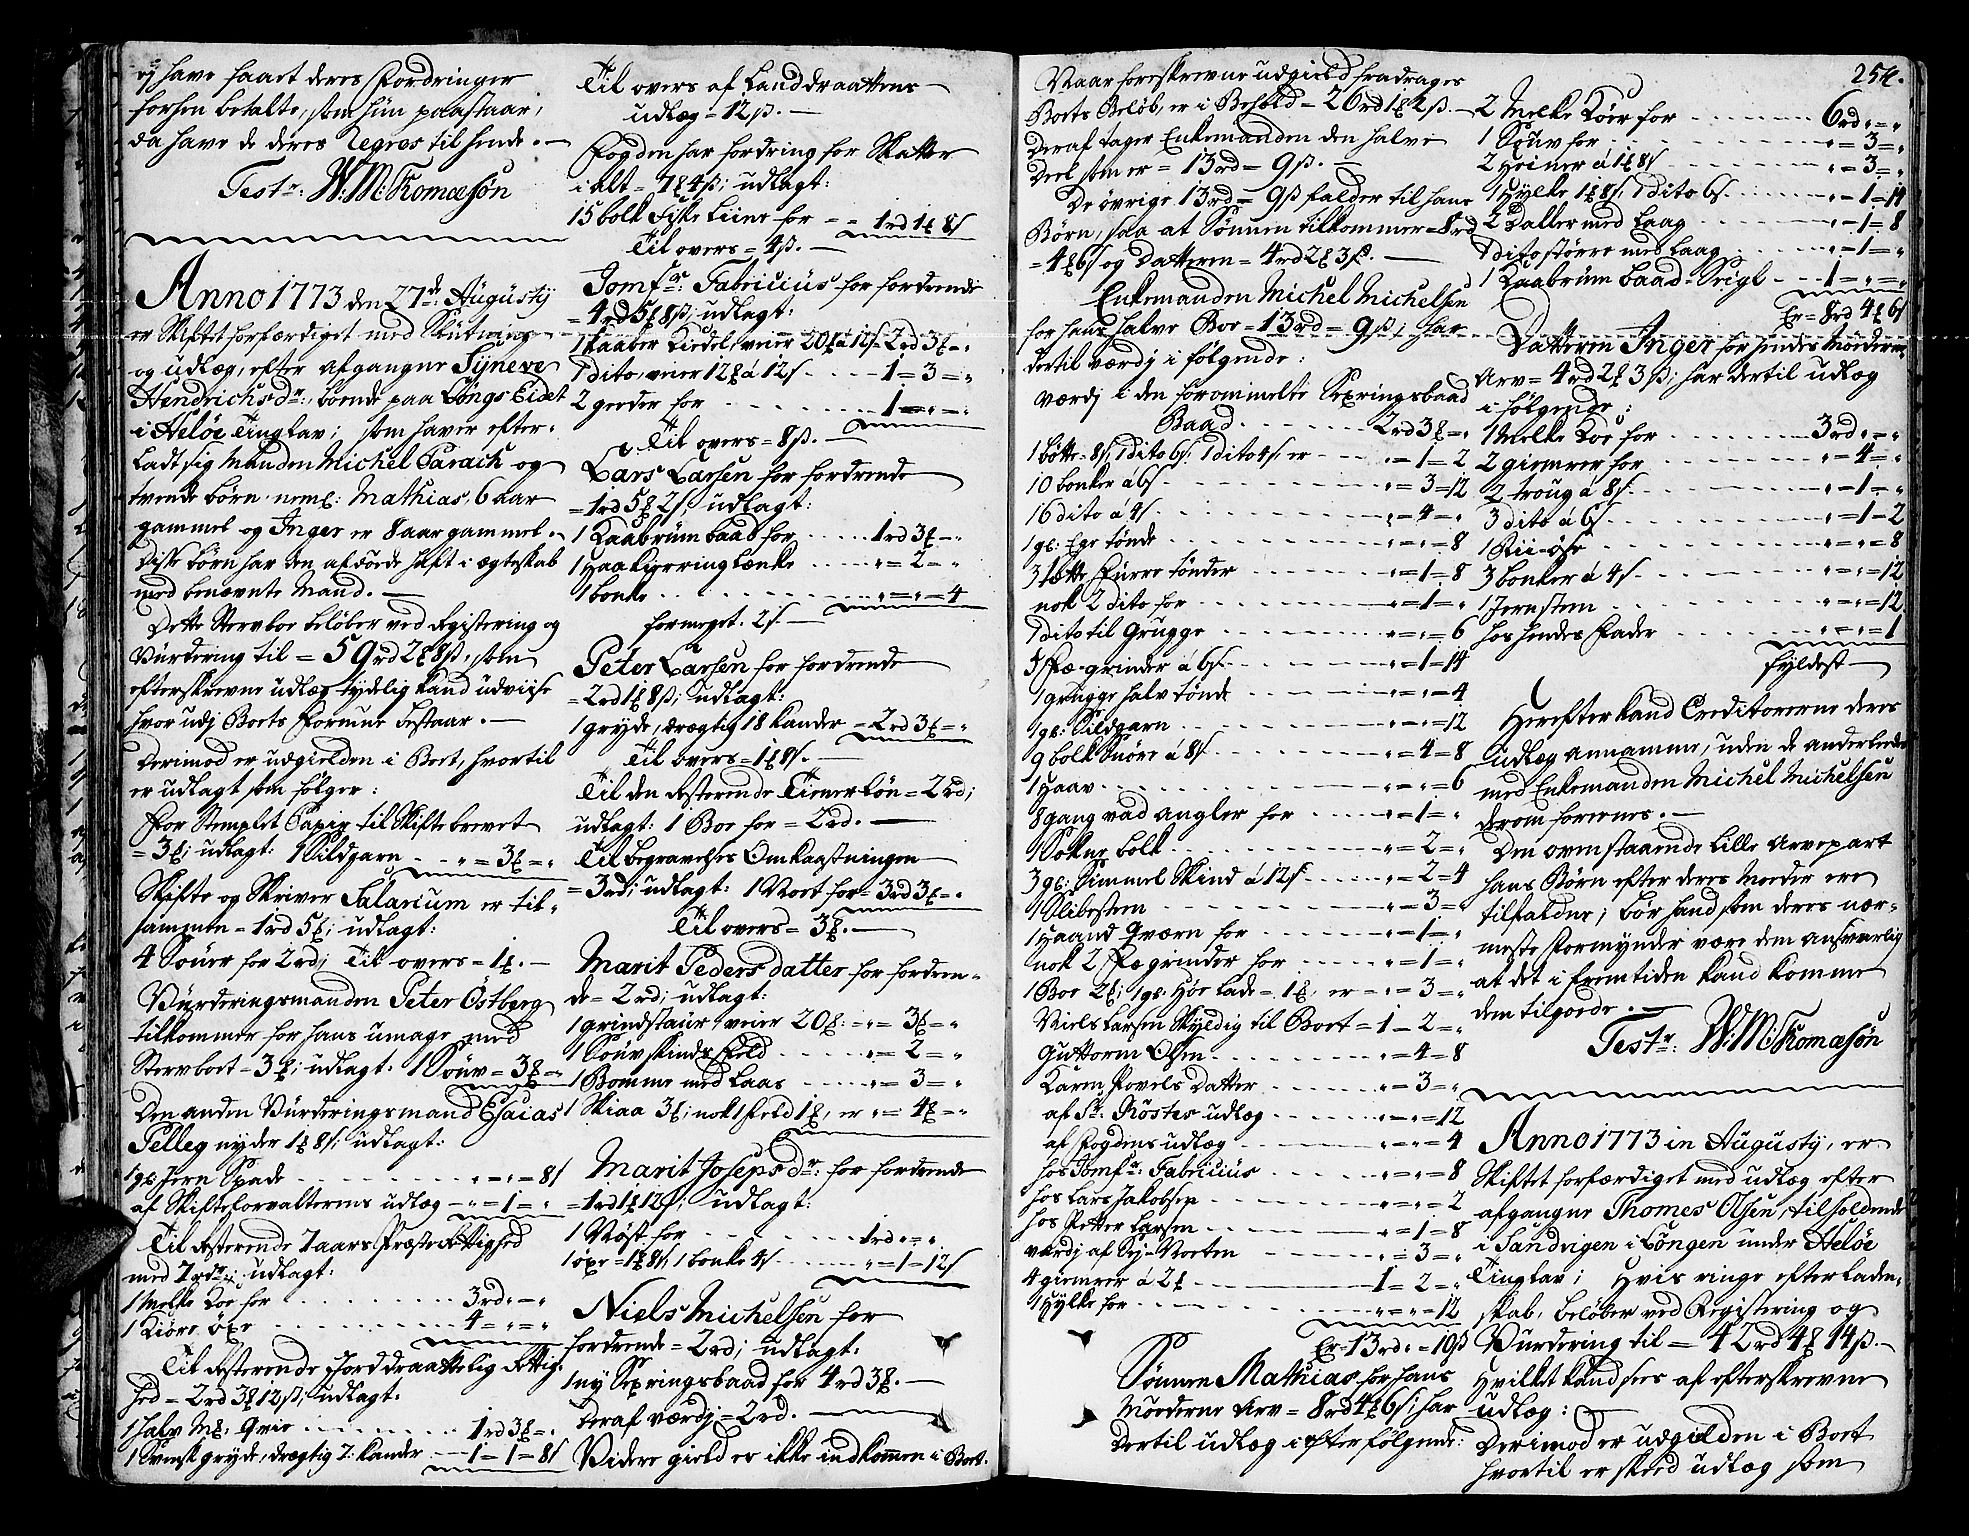 og have faaet deres Fordringer
forhen betalte, som hun paastaar,
da have de deres Regres til hende. —
Test: W: M: Thomæsøn
Anno 1773 den 27de: Augustÿ
er Skiftet forfærdiget med Slutning
og udlæg, efter afgangne Syneve
Hendrichsdr: boende paa Løngs Eidet
i Heløe Tinglav; som haver efter-
ladt sig Manden Michel Parach og
tvende børn neml: Mathias, 6 aar
gammel og Inger er 8 aar gammel.
Disse børn har den afdøede haft i ægteskab
med benævnte Mand. —
Dette Sterrboe beløber ved Registering og
Vurdering til = 59rd 2 8ß, som
efterskrevne udlæg tydelig kand udviise
hvor udj Boets Formue bestaar. —
Derimod er udgielden i Boet, hvortil
er udlagt som følger:
For Stemplet Papir til Skiftebrevet
= 3; udlagt: 1 Sildgarn - - " = 3 = "
Skifte og Skriver Salarium er til-
sammen = 1rd 5; udlagt:
4 Souer for 2rd; Til overs = 1. —
Vurderingsmanden Peter Østberg
tilkommer for hans umage med
Sterrboet = 3; udlagt: 1 Souv = 3 = "
Den anden Vurderingsmand Esaias
Pelleg nyder 1 8ß; udlagt:
1 gl: Jern Spade - - - " = " = 8ß
af Skifteforvalterens udlæg - " = 1 = "
Til resterende 7 aars Præste Rettighed
med 7rdr; udlagt:
1 Melke Koe for - - - 3rd " = "
1 Kiøre øxe - - - 4 = " = "
Til resterende Jorddraattelig Rettig-
hed = 2rd 3 12ß; udlagt:
1 halv Mk: Qvie - - - 1rd 3 = "
1 Svensk gryde, drægtig 7 kander - 1 = 1 = 8ß
Til overs af Landdraattens
udlæg = 12ß. —
Fogden har fordring for Skatter
i alt = 7 4ß; udlagt:
15 bolk Fiske Liine for - - 1rd 1 8ß
Til overs = 4ß. —
Jomfr: Fabricius for fordrende
= 4rd 5 8ß; udlagt:
1 Kaaber Kiedel, veier 20 á 12ß = 2rd 3 = "
1 dito, veier 12 á 12ß - - - 1 = 3 = "
2 geeder for - - - 1 = " = "
Til overs = 8ß. —
Lars Larsen for fordrende
= 1rd 5 2ß, udlagt:
1 Kaabrum baad for - - - 1rd 3 = "
1 Haakierring lænke - - - " = 2 = "
1 bonke - - - " = " = 4
formeget: 2ß. —
Peter Larsen for fordrende
= 2rd 1 8ß; udlagt:
1 gryde, drægtig 18 kander = 2rd 3 = "
Til overs = 1 8ß. —
Til den resterende Tienerløn = 2rd;
udlagt: 1 Boe for = 2rd. —
Til begravelses Omkaastningen
= 3rd; udlagt: 1 Noet for = 3rd 3 = "
Til overs = 3. —
Marit Pedersdatter for fordren-
de = 2rd; udlagt:
1 grindstaur, veier 20 = " = 3 = "
1 Souvskinds Feld - - - " = 2 = "
1 Bomme med Laas - - - " = 3 = "
1 Skiaa 3; nok 1 feld 1, er " = 4 = "
Marit Josepsdr: for fordrende
= 1rd 1 12ß; udlagt:
1 Nøst for - - - 1rd " = "
1 øxe = 1 8ß, 1 bonke 4ß - - - " = 1 = 12ß
Niels Michelsen for
fordrende = 2rd; udlagt:
1 ny Sexringsbaad for 4rd 3. —
Deraf værdj = 2rd. —
Videre gield er ikke indkommen i Boet.
254.
Naar foreskrevne udgield fradrages
Boets Beløb, er i Behold = 26rd 1 2ß. —
Deraf tager Enkemanden den halve
Deel som er = 13rd = 9ß. —
De øvrige 13rd = 9ß falder til hans
Børn, saa at Sønnen tilkommer = 8rd
= 4 6ß og Datteren = 4rd 2 3ß. —
Enkemanden Michel Michelsen
for hans halve Boe = 13rd = 9ß; har
dertil værdj i følgende:
værdj i den forommelte Sexringsbaad
Baad - - - 2rd 3 = "
1 bøtte = 8ß, 1 dito 6ß, 1 dito 4ß er - - " = 1 = 2
10 bonker á 6ß - - - " = 3 = 12
16 dito á 4ß - - - " = 4 = "
1 gl: Ege tønde - - - " = " = 8
3 tætte Furre tønder - - - " = 1 = 8
nok 2 dito for - - - " = 1 = "
1 dito til Grugge - - - " = " = 6
5 Fæ-grinder á 6ß - - - " = 1 = 14
1 grugge halv tønde - - - " = " = 4
1 gl: Sildgarn - - - " = " = 12
9 bolk Snøre á 8ß - - - " = 4 = 8
1 Haav - - - " = " = 6
8 gang vad angler for - - - " = 1 = "
1 Sokne bolk - - - " = 2 = "
3 gl: Simmel Skind á 12ß - - - " = 2 = 4
1 Slibesteen - - - " = 3 = "
1 Haand Qværn for - - - " = 1 = "
nok 2 Fægrinder for - - - " = 1 = "
1 Boe 2; 1 gl: Høe Lade = 1, er - " = 3 = "
Niels Larsen skyldig til Boet = 1 = 2 = "
Guttorm Olsen - - - " = 4 = 8
Karen Povels datter - - - " = 3 = "
af Sr: Røstes udlæg - - - " = " = 12
af Fogdens udlæg - - - " = " = 4
hos Jomfr: Fabricius - - - " = " = 8
hos Lars Jakobsen - - - " = " = 2
hos Petter Larsen - - - " = 1 = 8
værdj af Sej-Noeten - - - " = 3 = "
4 giemrer á 2 - - - 1 = 2 = "
1 Hylke for - - - " = " = 12
Er = 13rd " = 10ß
Sønnen Mathias for hans
Mørderne Arv = 8rd 4 6ß; har
dertil udlæg i efterfølgende:
2 Melke Køer for - - - 6rd " = "
1 Souv for - - - " = 3 = "
2 Heiner á 1 8ß - - - " = 3 = "
1 Hylke 1 8ß, 1 dito 6ß - - - " = 1 = 14
2 Daller med Laag - - - " = 1 = 8
1 dito større med Laag - - - " = 1 = "
1 Kaabrum baad-Seigl - - - 1 = " = "
Er = 8rd 4 6ß
Datteren Inger for hendes Mørderne
Arv = 4rd 2 3ß; har dertil udlæg
i følgende:
1 Melke Koe for - - - 3rd " = "
2 giemrer for - - - " = 4 = "
2 troug á 8ß - - - " = 1 = "
3 dito á 6ß - - - " = 1 = 2
1 Rii-øse - - - " = " = 8
3 bonker á 4ß - - - " = " = 12
1 Jernsteen - - - " = " = 12
hos hendes Fader - - - " = " = 1
fyldest
Herefter kand Creditorerne deres
udlæg annamme, uden de anderledes
med Enkemanden Michel Michelsen
derom foreenes. —
Den ovenstaaende lille Arvepart
hans Børn efter deres Moeder ere
tilfalden, bør hand som deres nær-
meste Formynder være dem ansvarlig
at det i fremtiden kand komme
dem tilgode. —
Test: W: M: Thomæsøn
Anno 1773 in Augusty, er
Skiftet forfærdiget med udlæg efter
afgangne Thomes Olsen, tilholdende
i Sandvigen i Løngen under Heløe
Tinglav; Hvis ringe efterladen-
skab, beløber ved Registering og
Vurdering til = 42rd 4 14ß. —
Hvilket kand sees af efterskrevne
udlæg: —
Derimod er udgielden i Boet
hvortil er skeed udlæg som